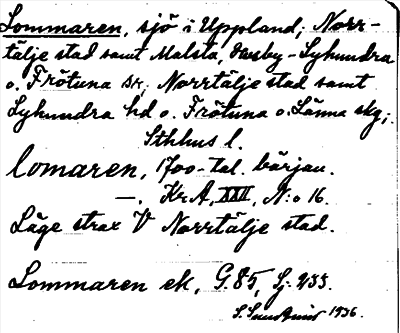 Lommaren, sjö i Uppland; Norr-
tälje stad samt Malsta, Husby-Lyhundra
o. Frötuna sk, Norrtälje stad samt
Lyhundra hd o. Frötuna o. Länna skg;
Sthlms l.
lomaren, 1700-tal. början.
—, Kr. A. XXII, N:o 16.
Läge strax V Norrtälje stad.
Lommaren ek, G. 85, Lj. 233.
1936.